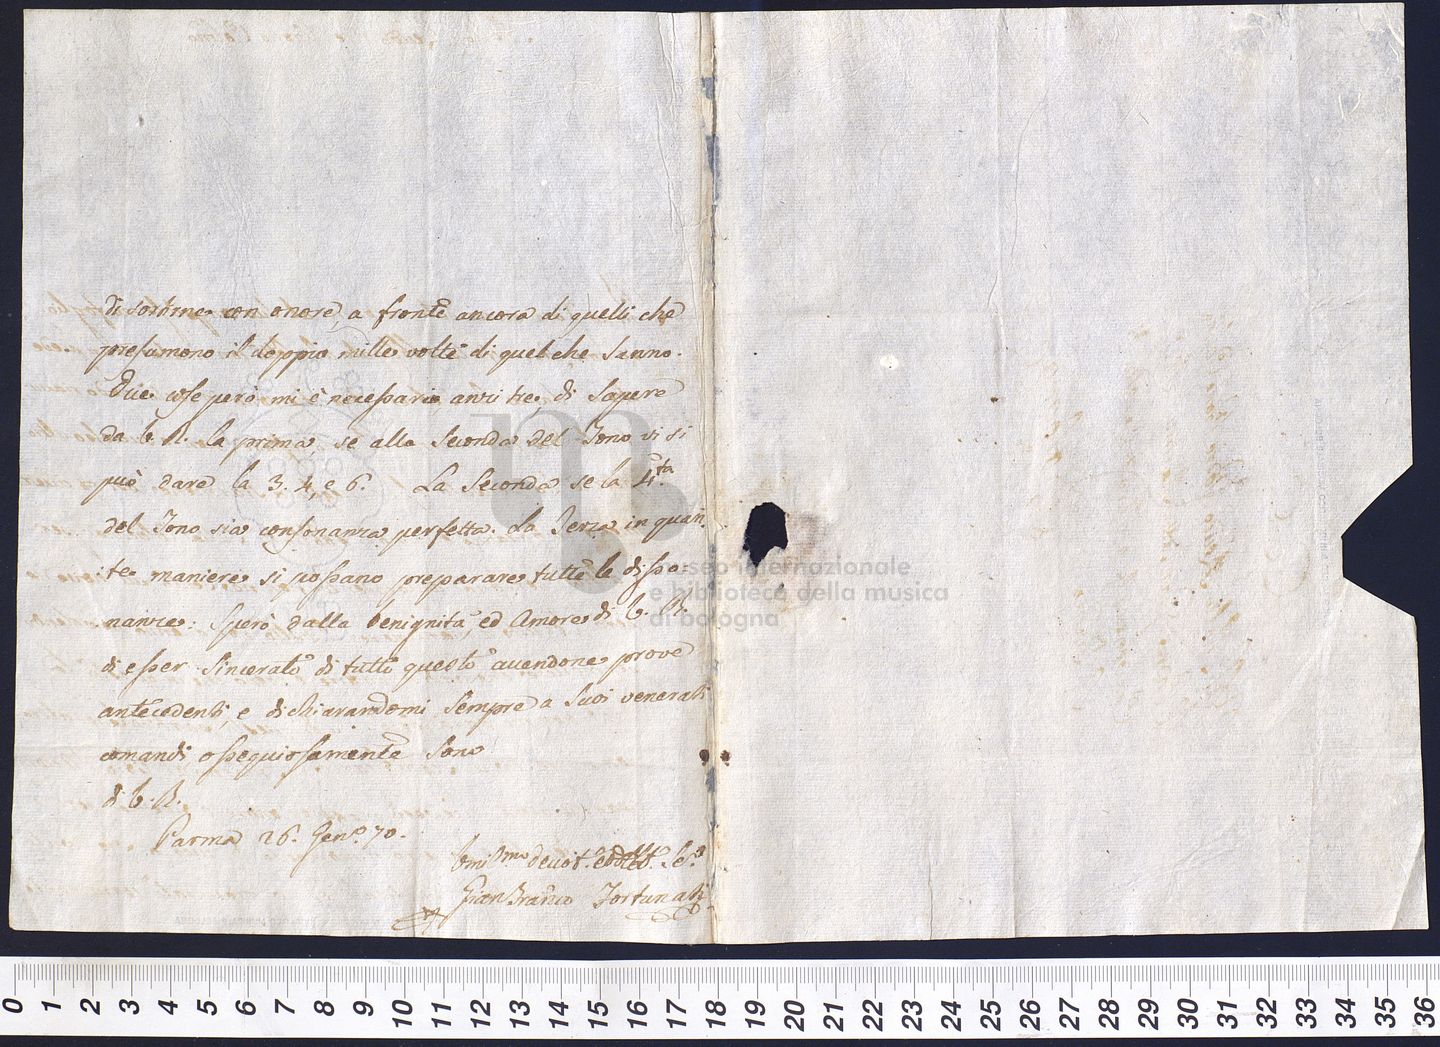 di sortirne con onore, a fronte ancora di quelli che
presumono il doppio mille volte di quel che sanno.
Due cose però mi è necessario anzi tre, di sapere
da V. R. la prima, se alla Seconda del Tono vi si
può dare la 3. 4, e 6. La Seconda, se la 4.ta
del Tono sia consonanza perfetta. La Terza in quan-
:te maniere si possano preparare tutte le disso-
nanze: Spero dalla benignità, ed Amore di V. R.
di esser sincerato di tutto questo avendone prove
antecedenti, e dichiarandomi sempre a Suoi venerati
comandi ossequiosamente Sono
di V. R.
Parma 26. Gen.o 70.
Umil.mo devot. ed Obbl. Se.e
Gian Fran.co Fortunati
museo internazionale
e biblioteca della musica
di bologna
0 1 2 3 4 5 6 7 8 9 10 11 12 13 14 15 16 17 18 19 20 21 22 23 24 25 26 27 28 29 30 31 32 33 34 35 36